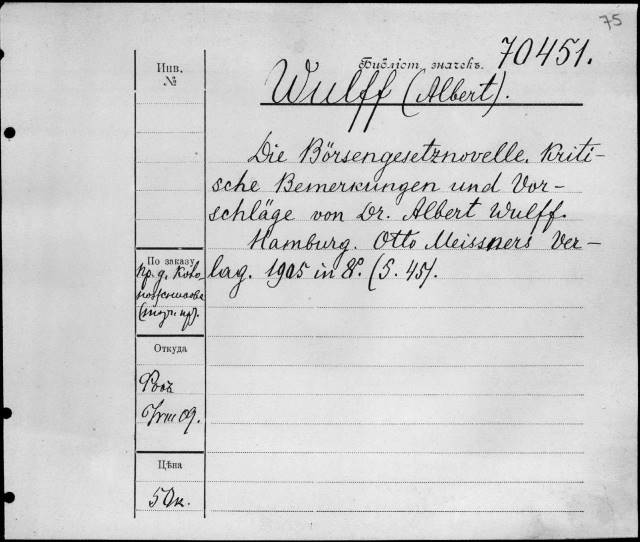 75
Библіот. значекъ. 70451.
Инв.
№
Wulff (Albert).
Die Börsengesetznovelle. Kriti-
sche Bemerkungen und Vor-
schläge von Dr. Albert Wulff.
Hamburg. Otto Meissners Ver-
lag. 1905 in 8º. (S. 45).
По заказу
пр. д.
Откуда
09.
Цѣна
50к.